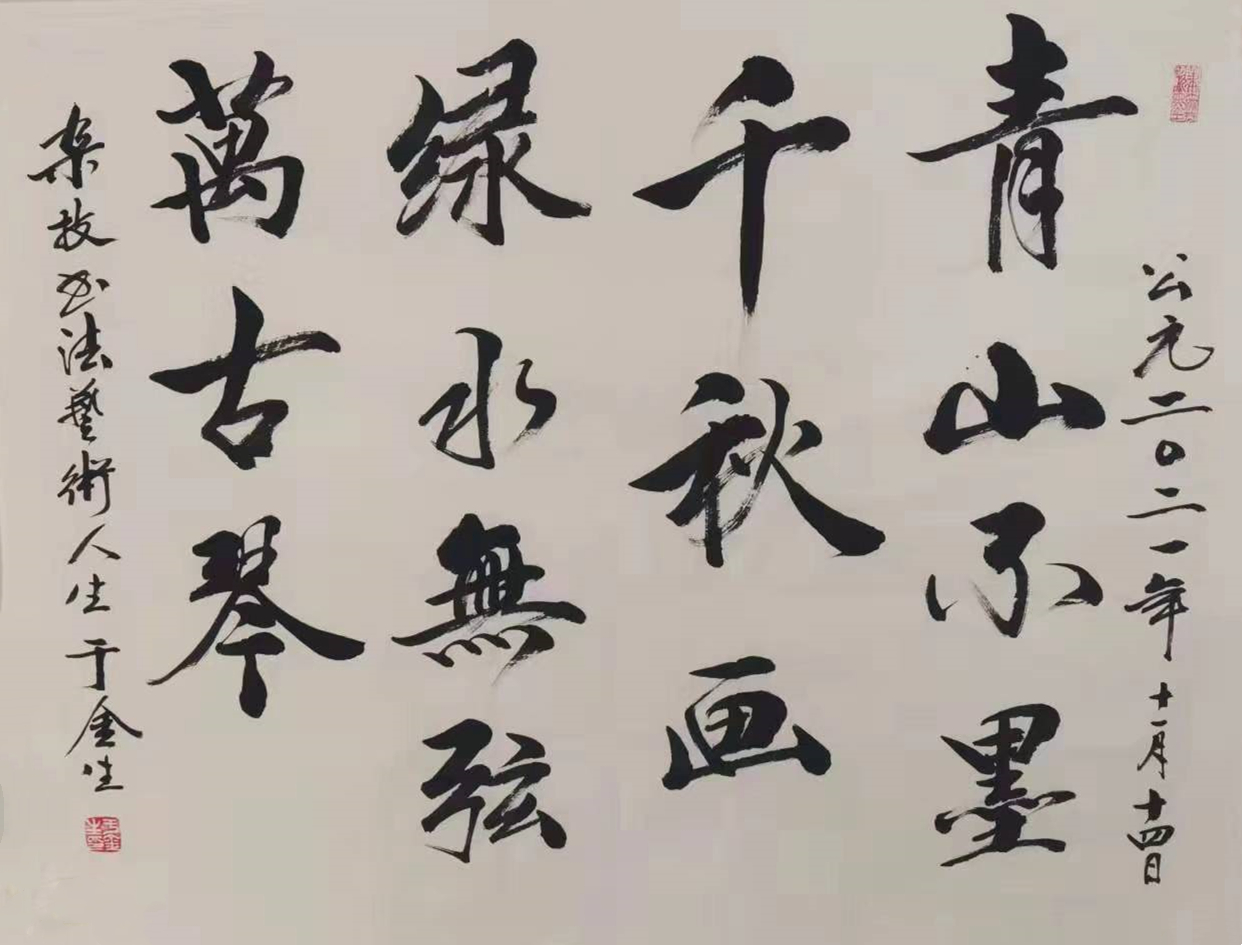 公元二〇二一年十一月十四日
青山不墨
千秋画
绿水無弦
萬古琴
杂技书法藝術人生于金生